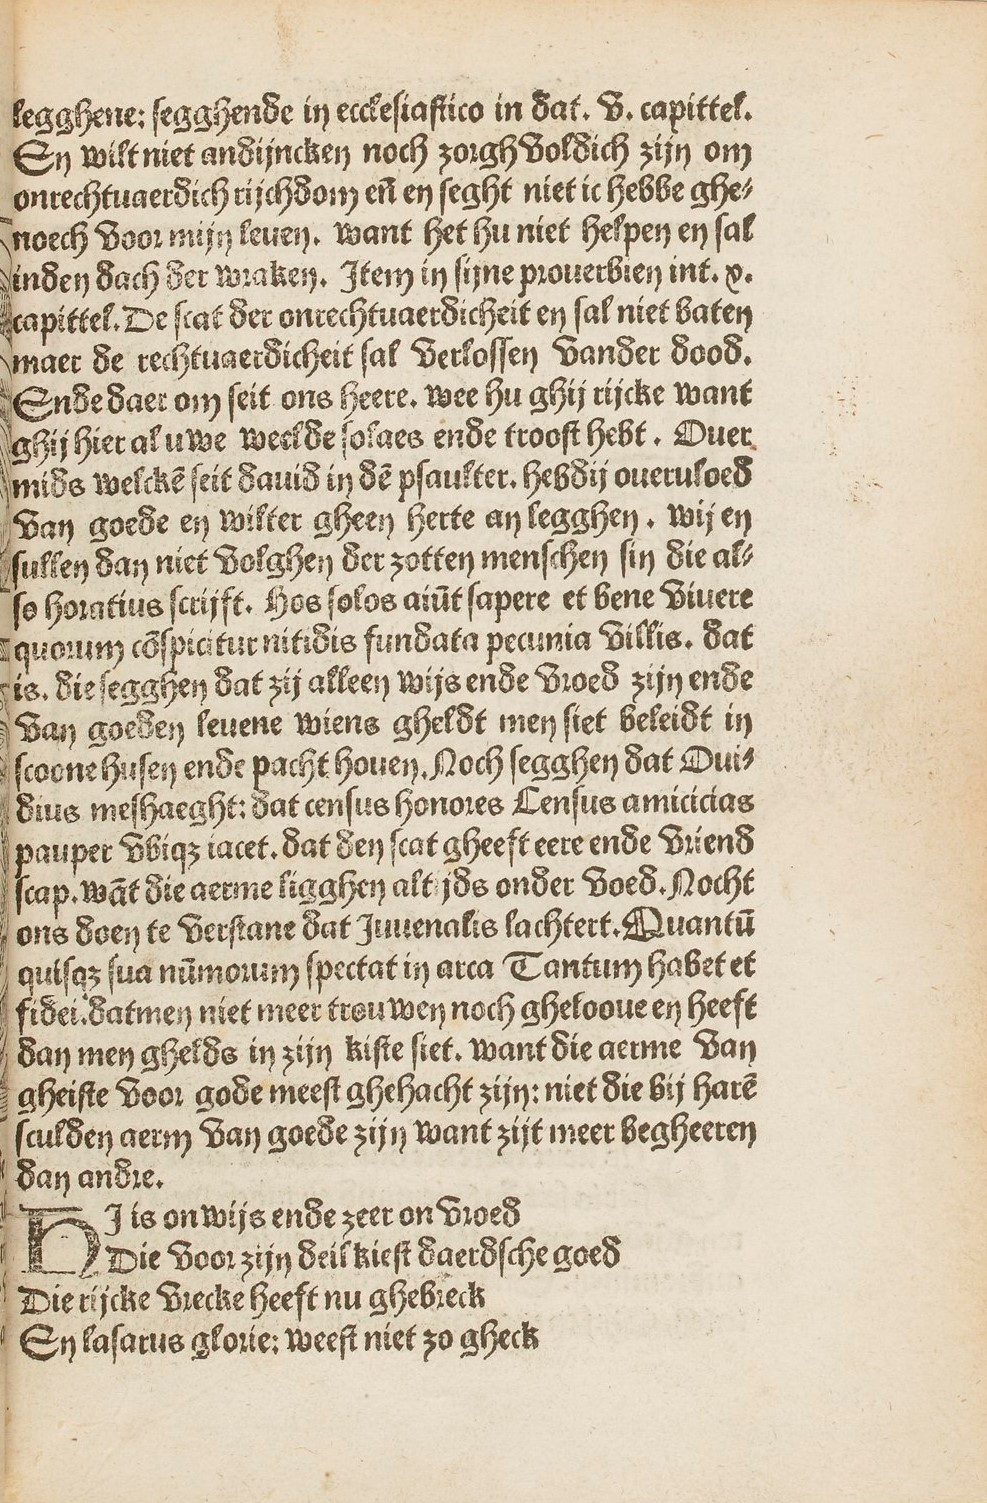 legghene: segghende in ecclesiastico in dat. v. capittel.
En wilt niet andijncken noch zorghvoldich zijn om
onrechtuaerdich rijchdom en̄ en seght niet ic hebbe ghe-
noech voor mijn leuen. want het hu niet helpen en sal
inden dach der wraken. Item in sijne prouerbien int. x.
capittel. De scat der onrechtuaerdicheit en sal niet baten
maer de rechtuaerdicheit sal verlossen vander dood.
Ende daer om seit ons heere. wee hu ghij rijcke want
ghij hier al uwe weelde solaes ende troost hebt. Ouer
mids welckē seit dauid in dē psaulter. hebdij oueruloed
van goede en wilter gheen herte an legghen. wij en
sullen dan niet volghen der zotten menschen sin die al-
so horatius scrijft. Hos solos aiūt sapere et bene viuere
quorum cōspicitur nitidis fundata pecunia villis. dat
is. die segghen dat zij alleen wijs ende vroed zijn ende
van goeden leuene wiens gheldt men siet beleidt in
scoone husen ende pacht houen. Noch segghen dat Oui-
dius meshaeght: dat census honores Census amicicias
pauper vbiqꝫ iacet. dat den scat gheeft eere ende vriend
scap. wāt die aerme ligghen alt ijds onder voed. Nocht
ons doen te verstane dat Iuuenalis lachtert. Quantū
quisqꝫ sua nūmorum spectat in arca Tantum habet et
fidei. datmen niet meer trouwen noch ghelooue en heeft
dan men ghelds in zijn kiste siet. want die aerme van
gheiste voor gode meest ghehacht zijn: niet die bij harē
sculden aerm van goede zijn want zijt meer begheeren
dan andre.
HI is onwijs ende zeer on vroed
Die voor zijn deil kiest daerdsche goed
Die rijcke vrecke heeft nu ghebreck
En lasarus glorie: weest niet zo gheck